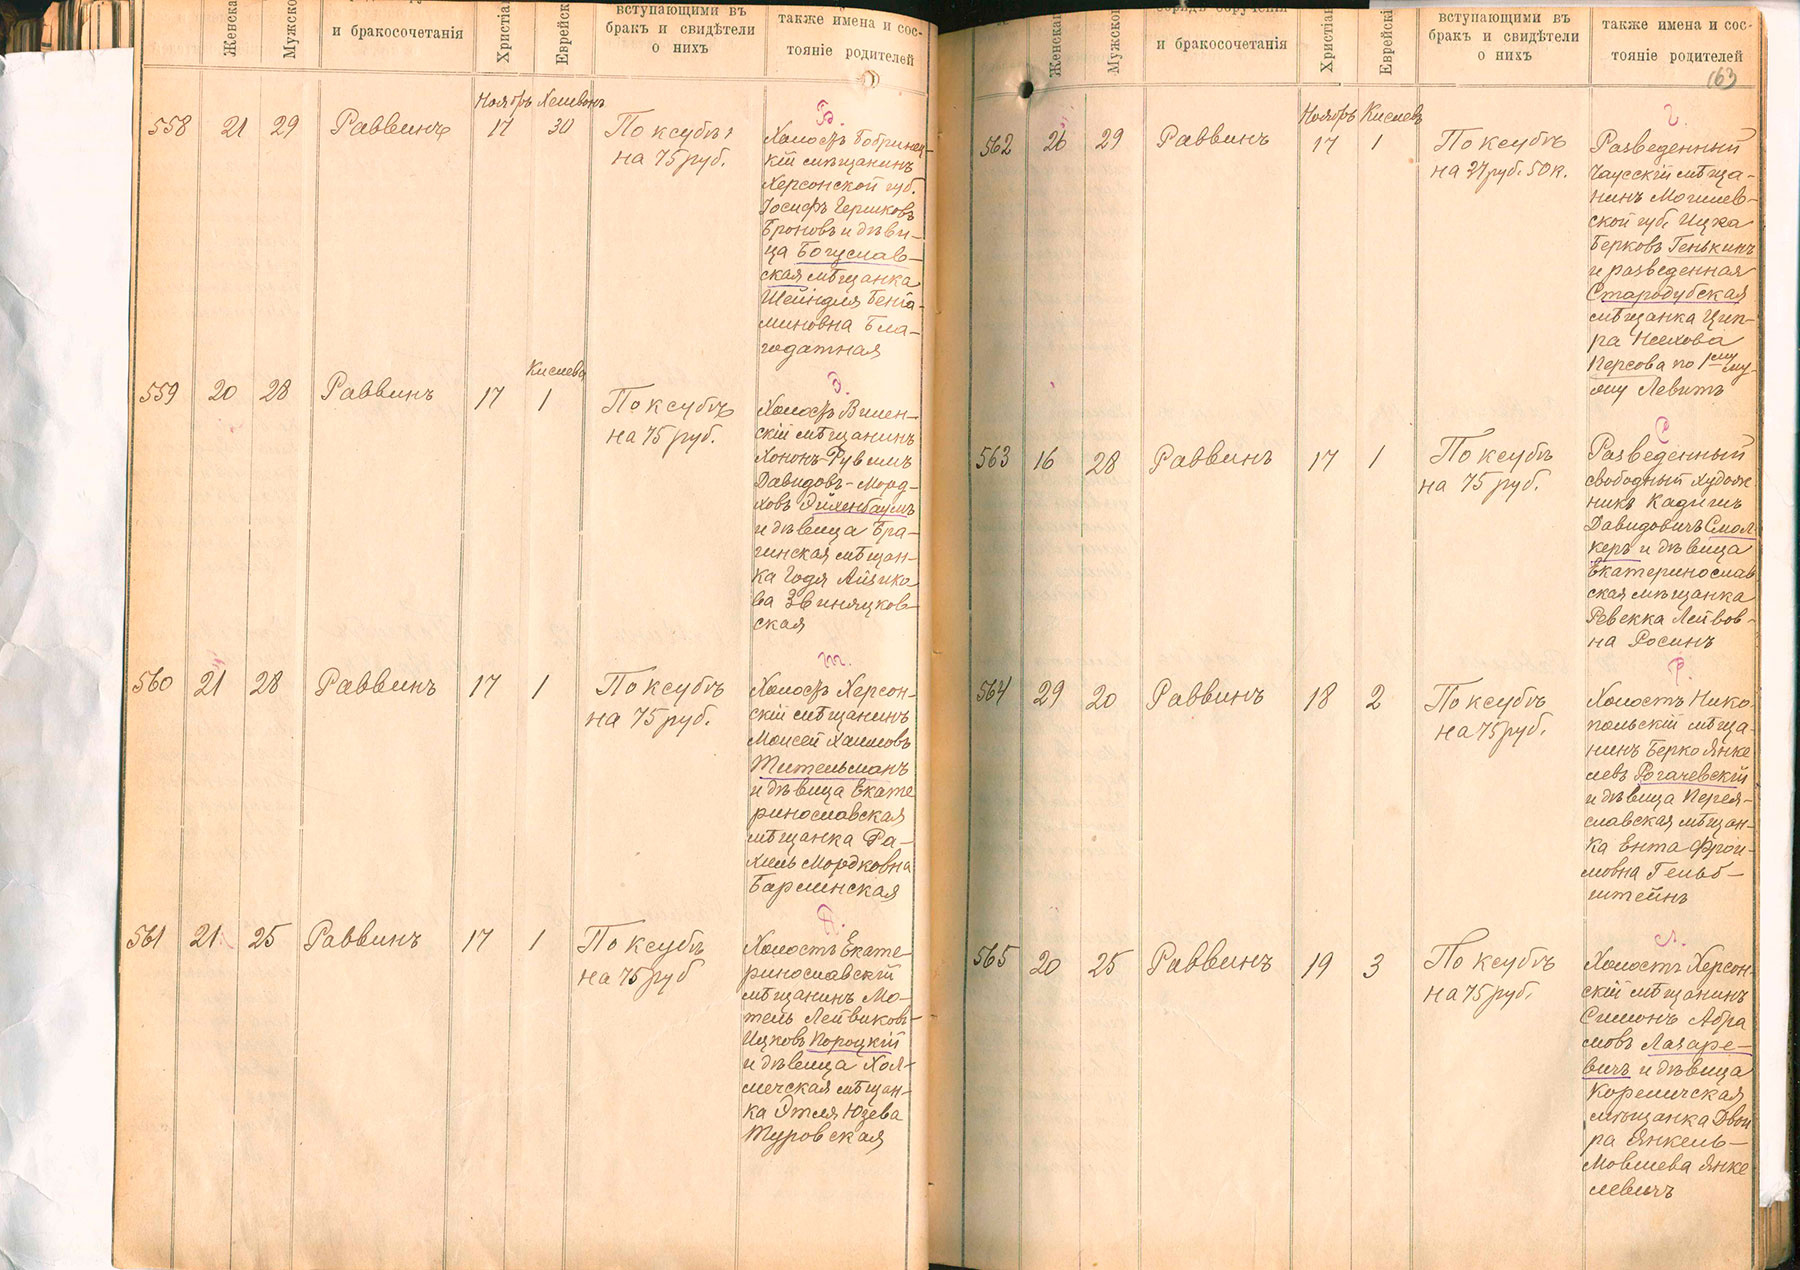 Женска
Мужско
и бракосочетанія
Христіа
Еврейск
вступающими въ
бракъ и свидѣтели
о нихъ
также имена и сос-
тояніе родителей
558
21
29
Раввинъ
Ноябрь
17
Хешвонъ
30
По ксубѣ
на 75 руб.
Б.
Холостъ Бобринец-
кій мѣщанинъ
Херсонской губ.
Іосифъ Гершковъ
Броновъ и дѣви-
ца Богуслав-
ская мѣщанка
Шейндля Бенiа-
миновна Бла-
годатная
559
20
28
Раввинъ
17
Кислева
1
По ксубѣ
на 75 руб.
Э.
Холостъ Вилен-
скій мѣщанинъ
Хононъ-Рувимъ
Давидовъ-Морд-
ховъ Эйхенбаумъ
и дѣвица Бра-
гинская мѣщан-
ка Годя Айзико
ва Звиняцков-
ская
560
21
28
Раввинъ
17
1
По ксубѣ
на 75 руб.
Т.
Холостъ Херсон-
скій мѣщанинъ
Моисей Хаимовъ
Тительманъ
и дѣвица Екате
ринославская
мѣщанка Ра-
хиль Мордковна
Барминская
561
21
25
Раввинъ
17
1
По ксубѣ
на 75 руб
П.
Холостъ Екате
ринославскій
мѣщанинъ Мо-
тель Лейвиковъ-
Ицковъ Пороцкій
и дѣвица Хол-
мечская мѣщан-
ка Этля Юдева
Туровская
Женская
Мужской
и бракосочетанія
Христіан
Еврейскі
вступающими въ
бракъ и свидѣтели
о нихъ
также имена и сос-
тояніе родителей
163
562
26
29
Раввинъ
Ноябрь
17
Кислевъ
1
По ксубѣ
на 27 руб. 50 к.
Г.
Разведенный
Чаусскій мѣща-
нинъ Могилев-
ской губ. Ицка
Берковъ Генькинъ
и разведенная
Стародубская
мѣщанка Цип-
ра Нсехова
Персова по 1му му-
жу Левитъ
563
16
28
Раввинъ
17
1
По ксубѣ
на 75 руб.
С.
Разведенный
свободный худож
никъ Кадишъ
Давидовичъ Смол
керъ и дѣвица
Екатеринослав
ская мѣщанка
Ревекка Лейбов-
на Росинъ
564
29
20
Раввинъ
18
2
По ксубѣ
на 75 руб.
Р.
Холостъ Нико
польскій мѣща-
нинъ Берко Янке
левъ Рогачевскій
и дѣвица Перея-
славская мѣщан-
ка Ента Фрои-
мовна Гельб-
штейнъ
565
20
25
Раввинъ
19
3
По ксубѣ
на 75 руб.
Л.
Холостъ Херсон-
скій мѣщанинъ
Симонъ Абра
мовъ Лазаре-
вичъ и дѣвица
Кореличская
мѣщанка Двой
ра Янкель-
Мовшева Янке
левичъ